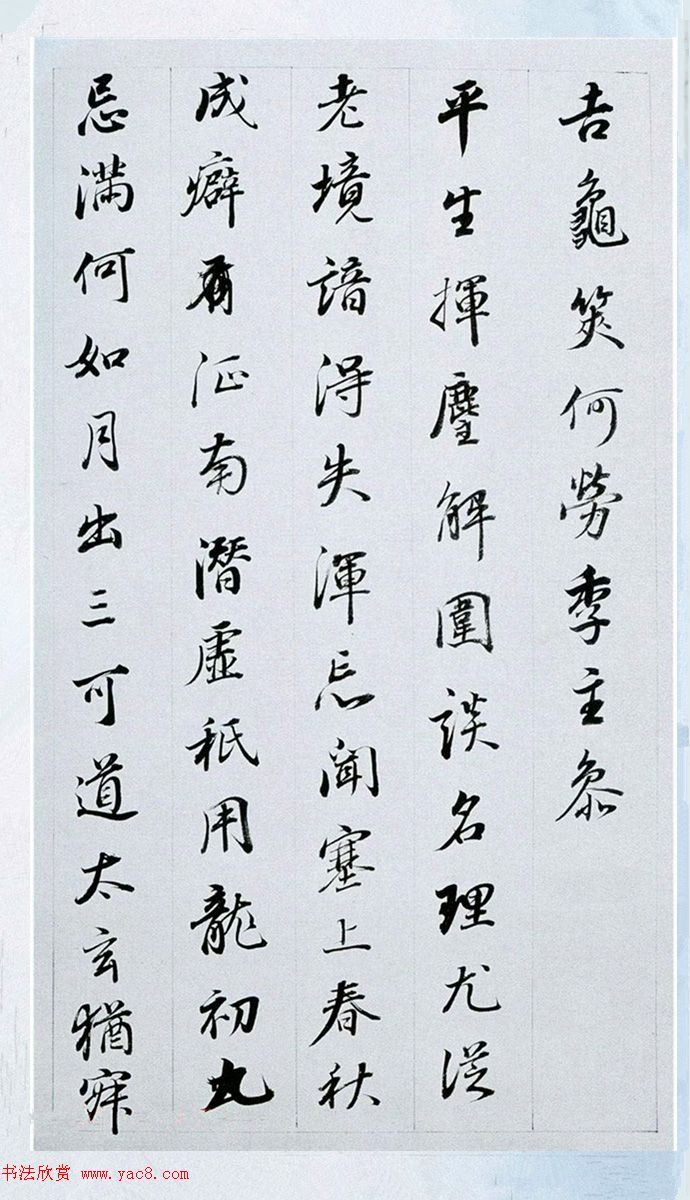 吉龜筴何勞季主參
平生揮麈解圍談名理尤從
老境諳得失渾忘聞塞上春秋
成癖有征南潛虛秪用龍初九
忌滿何如月出三可道太玄猶
书法欣赏 www.yac8.com